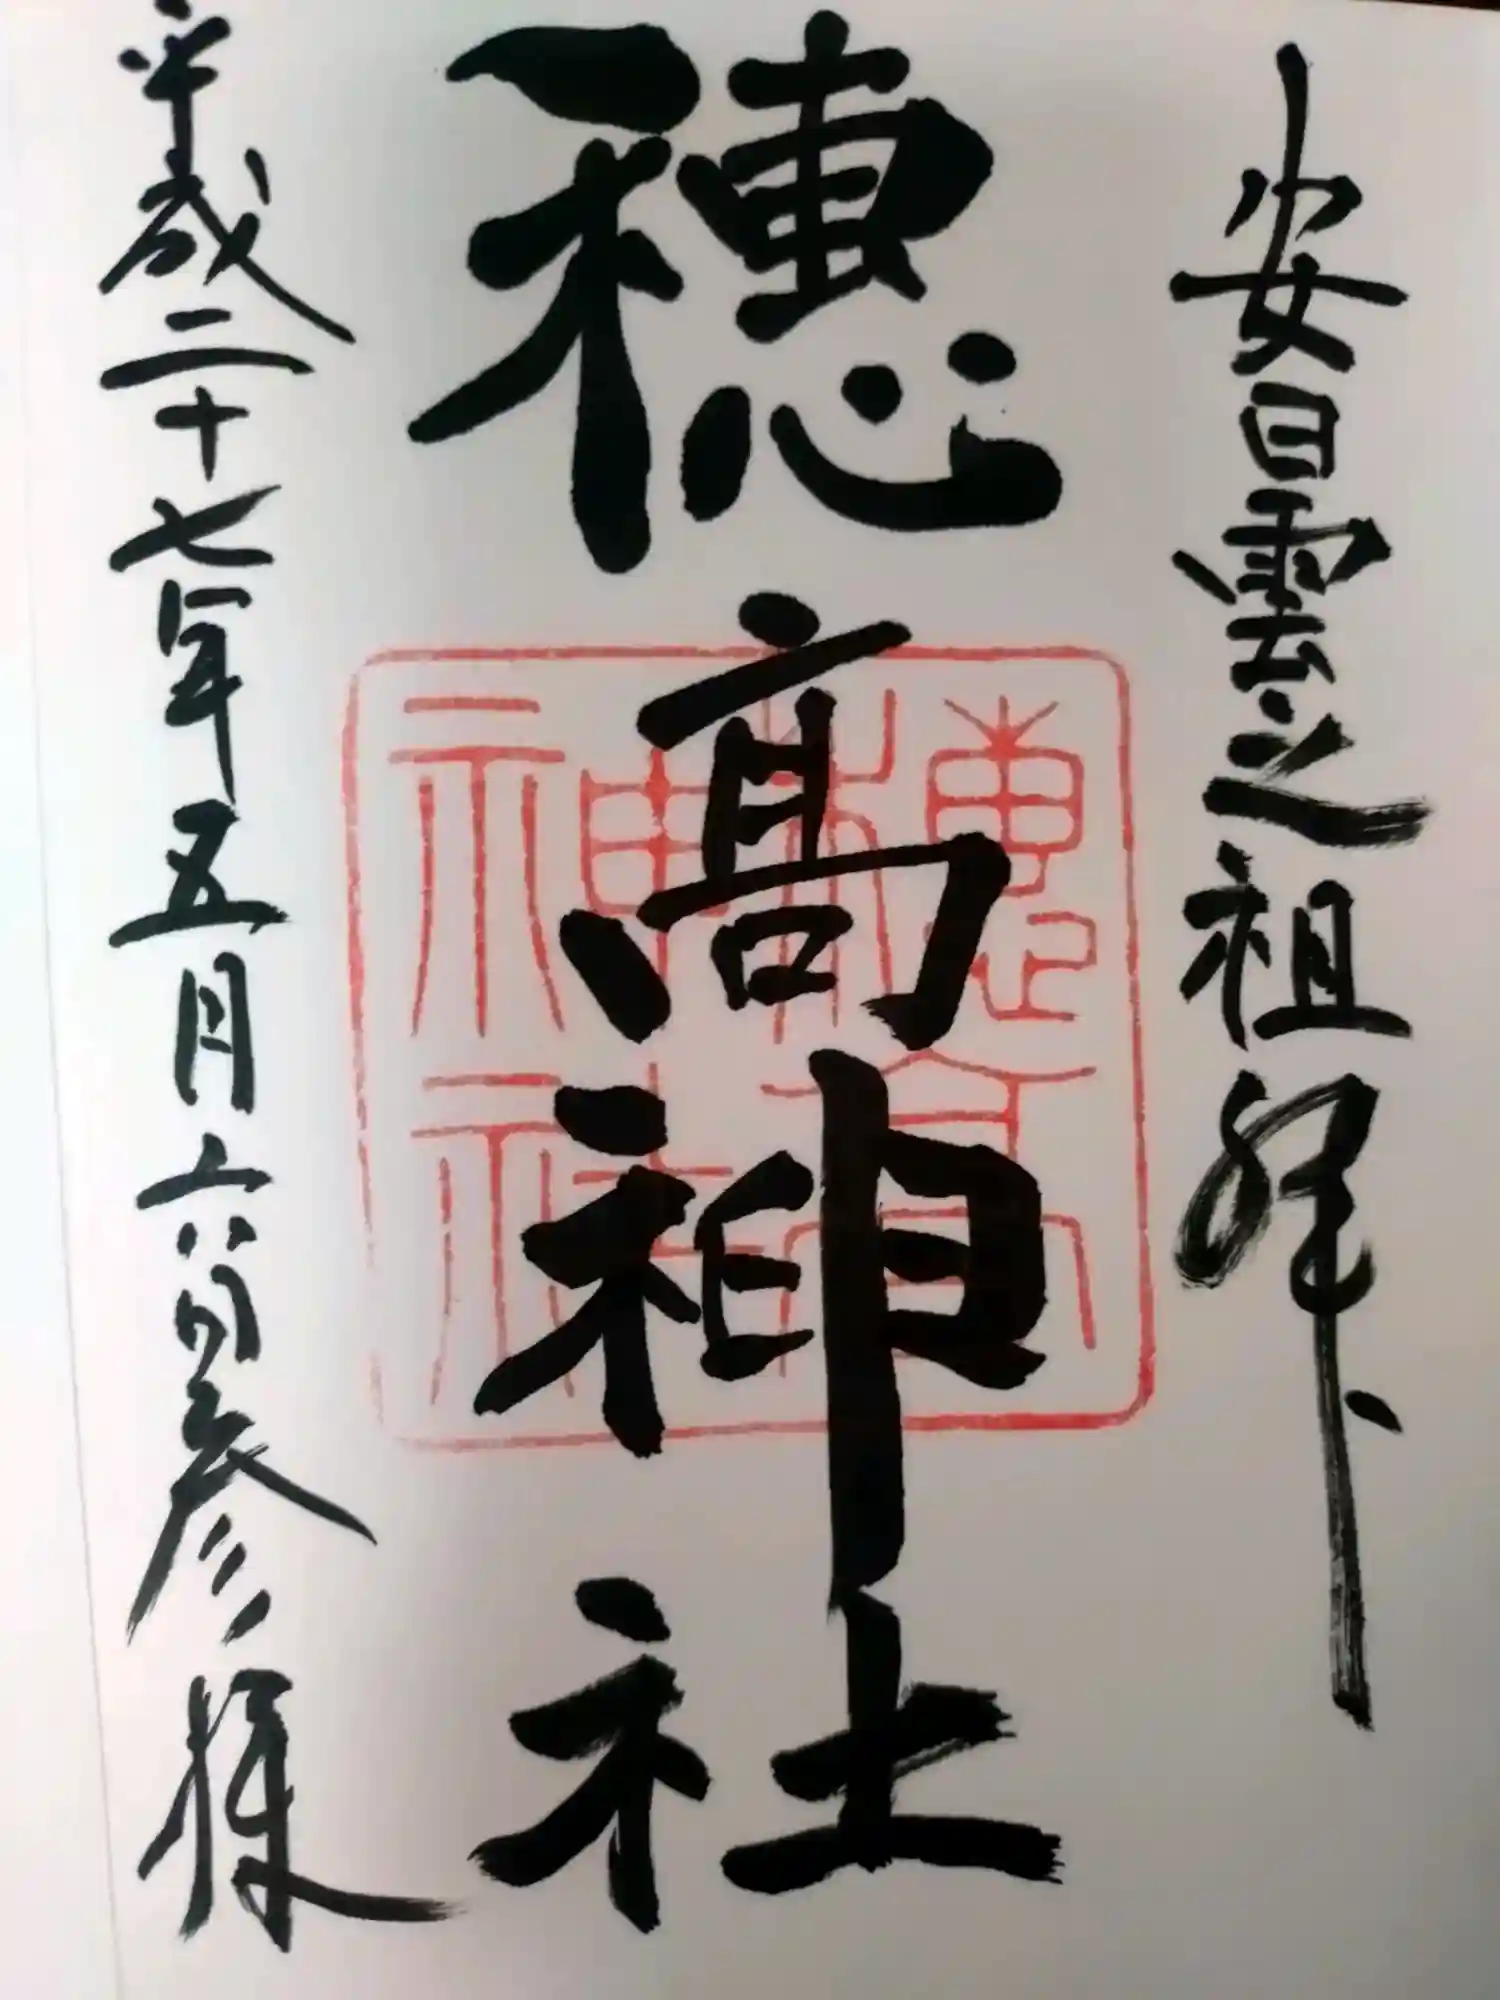 安曇之祖拝
穂高神社
穂高神社
平成二十七年五月六日参拝